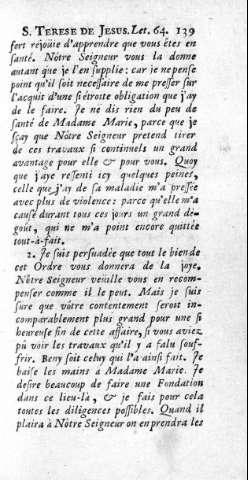 S. TERESE DE JESUS. Let. 64. 139
fort réjouie d'apprendre que vous êtes en
santé. Nôtre Seigneur vous la donne
autant que je l'en supplie: car je ne pense
point qu'il soit necessaire de me presser sur
l'acquit d'une si étroite obligation que j'ay
de le faire. Je ne dis rien du peu de
santé de Madame Marie, parce que je
sçay que Nôtre Seigneur pretend tirer
de ces travaux si continuels un grand
avantage pour elle & pour vous. Quoy
que j'aye ressenti icy quelques peines,
celle que j'ay de sa maladie m'a pressée
avec plus de violence: parce qu'elle m'a
causé durant tous ces jours un grand dé-
goût, qui ne m'a point encore quittée
tout-à-fait.
2. Je suis persuadée que tout le bien de
cet Ordre vous donnera de la joye.
Nôtre Seigneur veüille vous en recom-
penser comme il le peut. Mais je suis
sûre que vôtre contentement seroit in-
comparablement plus grand pour une si
heureuse fin de cette affaire, si vous aviez
pû voir les travaux qu'il y a falu souf-
frir. Beny soit celuy qui l'a ainsi fait. Je
baise les mains à Madame Marie. Je
desire beaucoup de faire une Fondation
dans ce lieu-là, & je fais pour cela
toutes les diligences possibles. Quand il
plaira à Nôtre Seigneur on en prendra les